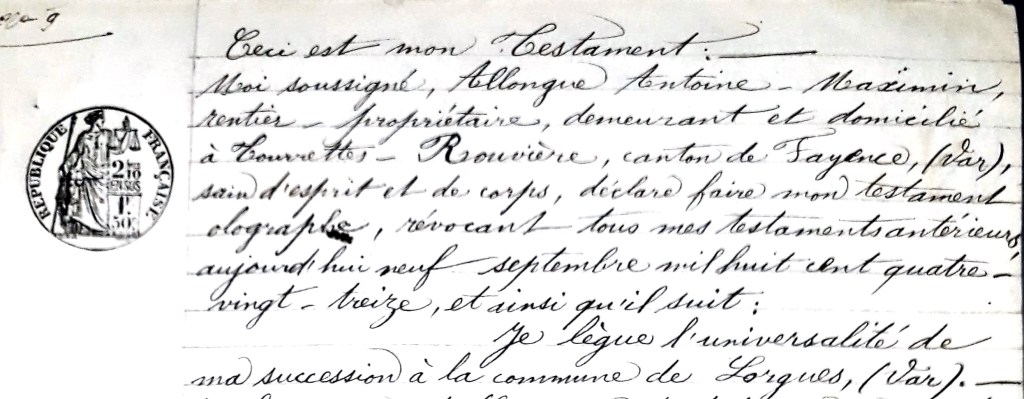 Ceci est mon Testament : —
Moi soussigné, Allongue Antoine - Maximin,
rentier - propriétaire, demeurant et domicilié
à Tourrettes - Rouvière, canton de Fayence, (Var),
sain d'esprit et de corps, déclare faire mon testament
olographe, révocant tous mes testaments antérieurs,
aujourd'hui neuf septembre mil huit cent quatre-
vingt - treize, et ainsi qu'il suit :
Je lègue l'universalité de
ma succession à la commune de Lorgues, (Var). —
RÉPUBLIQUE FRANÇAISE
2 10
EN SUS
1F
50C